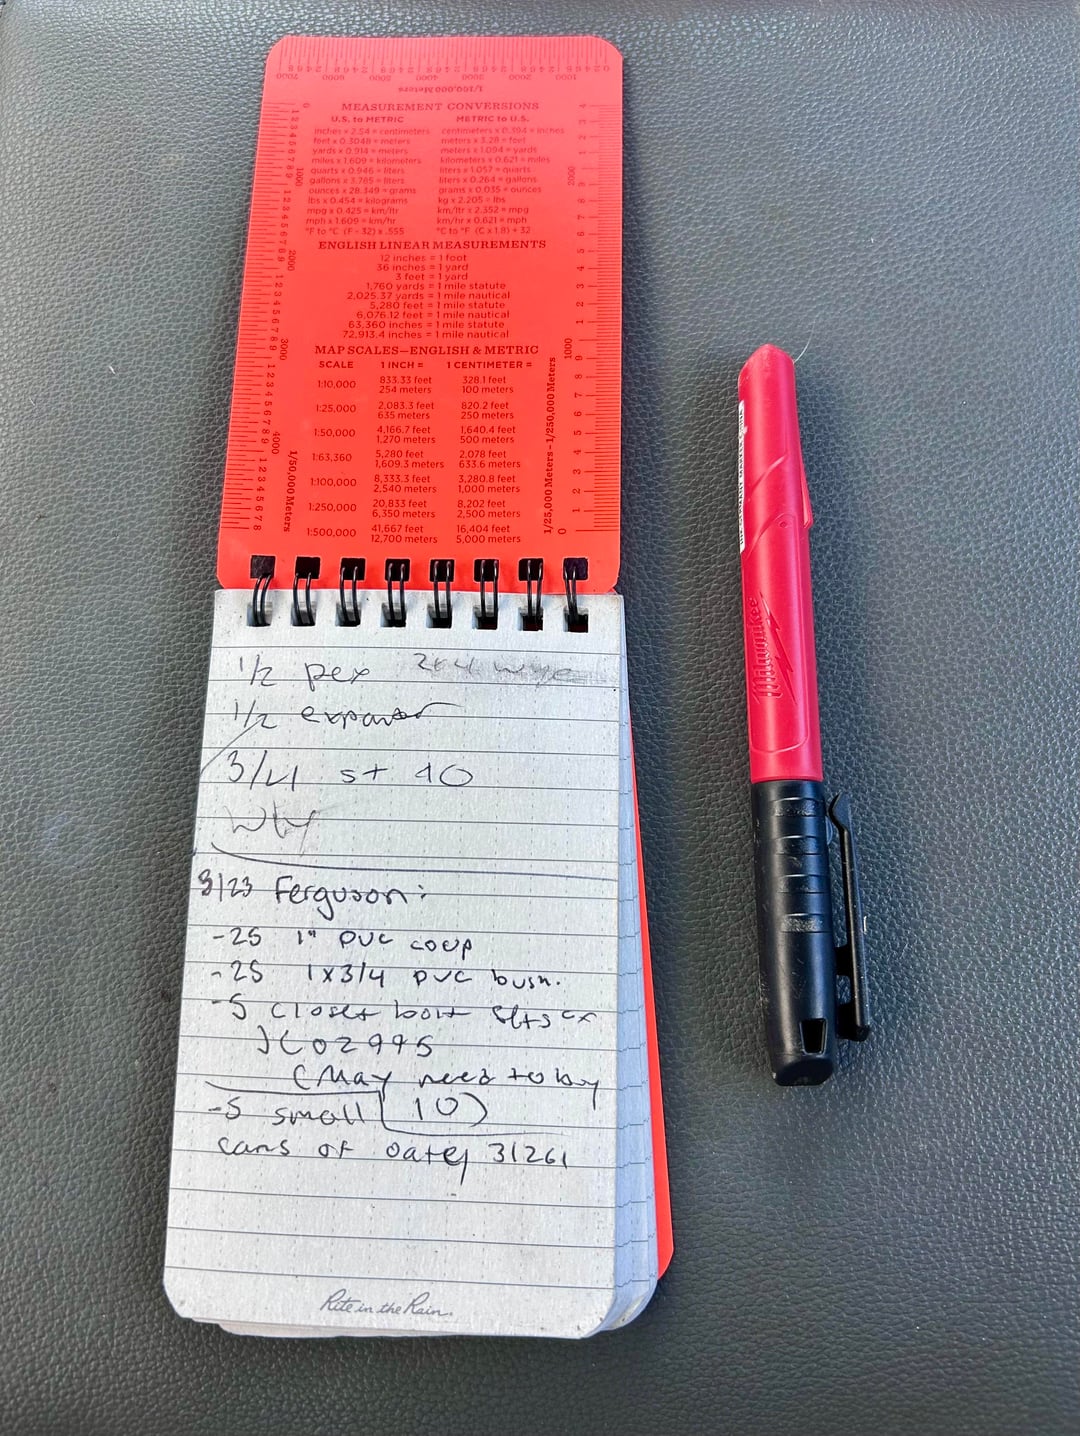 1/100,000 Meters
MEASUREMENT CONVERSIONS
U.S. to METRIC METRIC to U.S.
inches x 2.54 = centimeters centimeters x 0.394 = inches
feet x 0.3048 = meters meters x 3.28 = feet
yards x 0.914 = meters meters x 1.094 = yards
miles x 1.609 = kilometers kilometers x 0.621 = miles
quarts x 0.946 = liters liters x 1.057 = quarts
gallons x 3.785 = liters liters x 0.264 = gallons
ounces x 28.349 = grams grams x 0.035 = ounces
lbs x 0.454 = kilograms kg x 2.205 = lbs
mpg x 0.425 = km/ltr km/ltr x 2.352 = mpg
mph x 1.609 = km/hr km/hr x 0.621 = mph
°F to °C (F - 32) x .555 °C to °F (C x 1.8) + 32
ENGLISH LINEAR MEASUREMENTS
12 inches = 1 foot
36 inches = 1 yard
3 feet = 1 yard
1,760 yards = 1 mile statute
2,025.37 yards = 1 mile nautical
5,280 feet = 1 mile statute
6,076.12 feet = 1 mile nautical
63,360 inches = 1 mile statute
72,913.4 inches = 1 mile nautical
MAP SCALES—ENGLISH & METRIC
SCALE 1 INCH = 1 CENTIMETER =
1:10,000 833.33 feet 328.1 feet
254 meters 100 meters
1:25,000 2,083.3 feet 820.2 feet
635 meters 250 meters
1:50,000 4,166.7 feet 1,640.4 feet
1,270 meters 500 meters
1:63,360 5,280 feet 2,078 feet
1,609.3 meters 633.6 meters
1:100,000 8,333.3 feet 3,280.8 feet
2,540 meters 1,000 meters
1:250,000 20,833 feet 8,202 feet
6,350 meters 2,500 meters
1:500,000 41,667 feet 16,404 feet
12,700 meters 5,000 meters
1/50,000 Meters
1/25,000 Meters - 1/250,000 Meters
1/2 pex 2x4 wye
1/2 expander
3/4 st 90
3/23 Ferguson:
-25 1" PVC coup
-25 1x3/4 PVC bush.
-5 closet bolt sets
JC02995
(May need to buy
10)
-5 small
cans of oatey 31261
Rite in the Rain.
Milwaukee